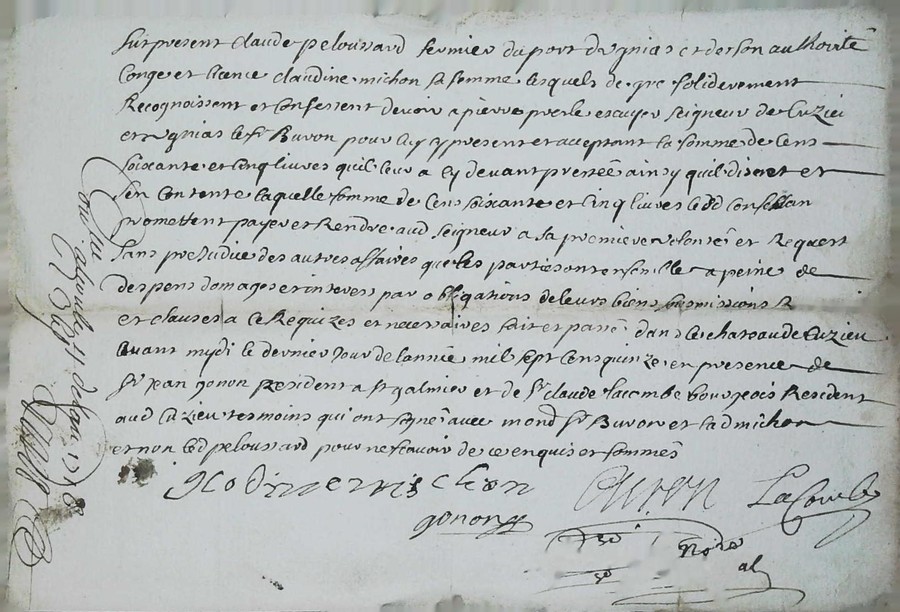 fut present Claude peloussard fermier du port dugnias et de son authorité
Conge et licence claudine michon sa femme lesquels de gre soliderement
Recognoissent et Confessent devoir a pierre perle escuyer seigneur de Cuzieu
et ugnias le sr Buron pour luy cy present et acceptant la somme de Cens
soixante et Cinq livres quil leur a cy devant presté ainsy quil disent et
sen Contente laquelle somme de Cens soixante et Cinq livres led Confessan
promettent payer et Rendre aud seigneur a sa premiere volonté et Requert
sans prejudice des autres affaires que les parties ont ensemble a peine de
despens domages et interes par obligations de leurs biens submissions R
et clauses a ce Requizes et necessaires fait et passé dans le chateau de Cuzieu
avant mydi le dernier Jour de lannee mil sept cens quinze en presence de
Sr Jean gonon Resident a st galmier et de Sr claude lacombe bourgeois Resident
aud Cuzieu tesmoins qui ont signé avec mond Sr Buron et lad michon
et non led peloussard pour ne scavoir de ce enquis et sommés
glodinne michon
Buron
La Combe
gonon
Nore
al